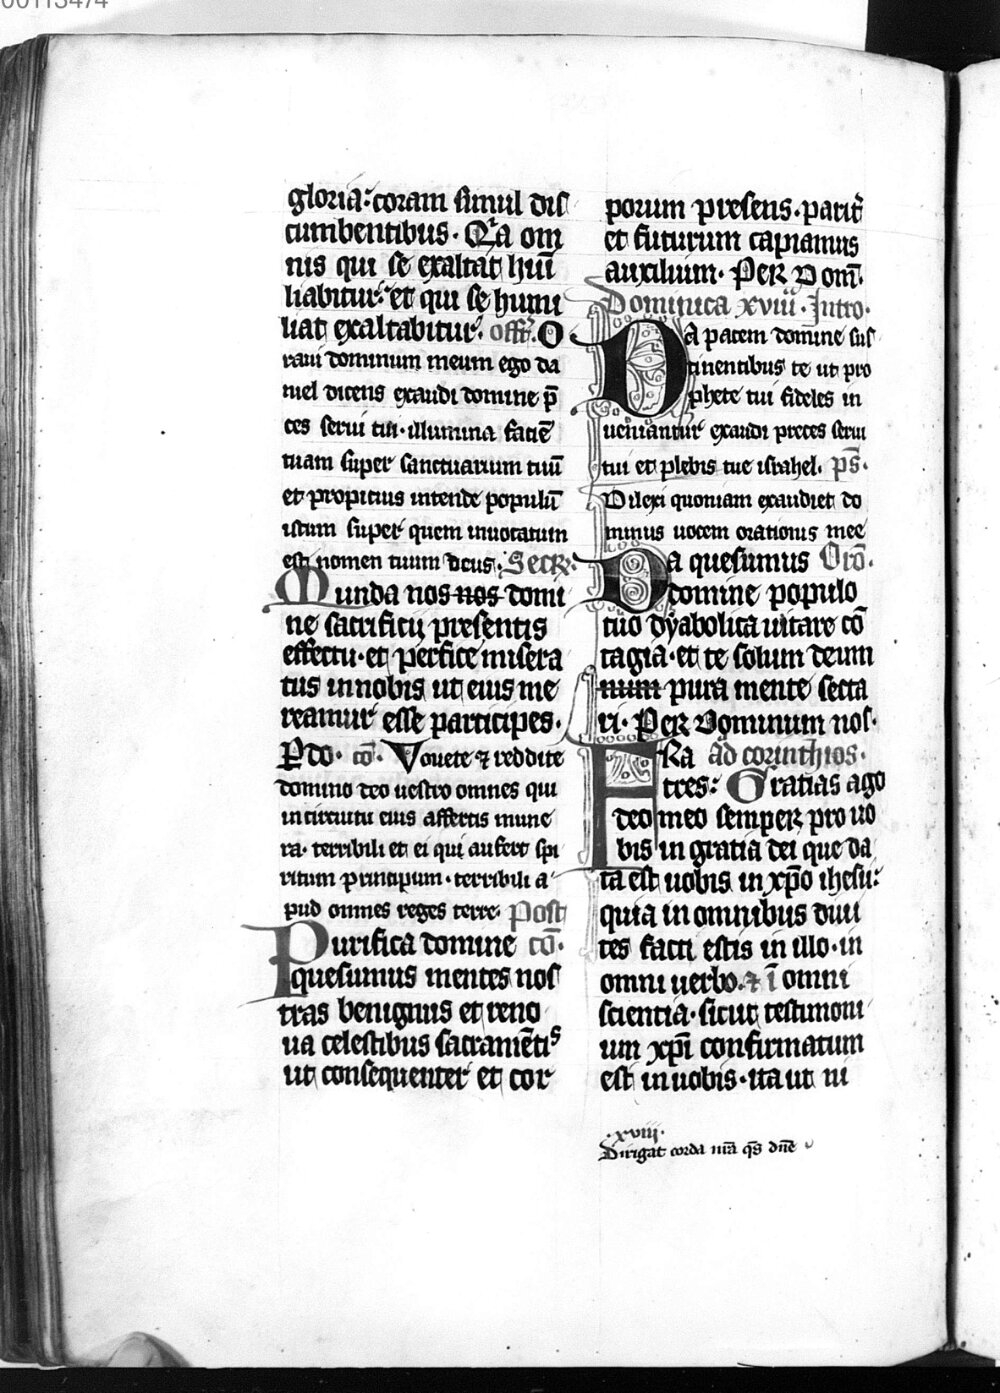 00113474
gloria: coram simul dis
cumbentibus. Qa om
nis qui se exaltat hūi
liabitur: et qui se humi
liat exaltabitur. offr̄. O
raui dominum meum ego da
niel dicens exaudi domine p̄
ces serui tui. illumina faciē
tuam super sanctuarium tuū
et propitius intende populū
istum super quem inuocatum
est nomen tuum deus. Secr̄.
Munda nos nos domi
ne sacrificij presentis
effectu. et perfice misera
tus in nobis ut eius me
reamur esse participes.
P̄ do. cō. Vouete ⁊ reddite
domino deo uestro omnes qui
in circuitu eius affertis mune
ra. terribili et ei qui aufert spi
ritum principum. terribili a
pud omnes reges terre. Post
Purifica domine cō.
quesumus mentes nos
tras benignus et reno
ua celestibus sacramētis
ut consequenter et cor
porum presens. parit̄
et futurum capiamus
auxilium. Per Dom̄.
Dominica xviii. Intro.
Da pacem domine sus
tinentibus te ut pro
phete tui fideles in
ueniantur exaudi preces serui
tui et plebis tue israhel. p̄s.
Dilexi quoniam exaudiet do
minus uocem orationis mee
Da quesumus Orō.
domine populo
tuo dyabolica uitare cō
tagia. et te solum deum
num pura mente secta
ri. Per Dominum nos.
FRa ad corinthios.
tres: Gratias ago
deo meo semper pro uo
bis in gratia dei que da
ta est uobis in xp̄o ihesu:
quia in omnibus diui
tes facti estis in illo. in
omni uerbo. ⁊ ī omni
scientia. sicut testimoni
um xp̄i confirmatum
est in uobis. ita ut ni
.xviii.
Dirigat corda nr̄a q̄s dn̄e